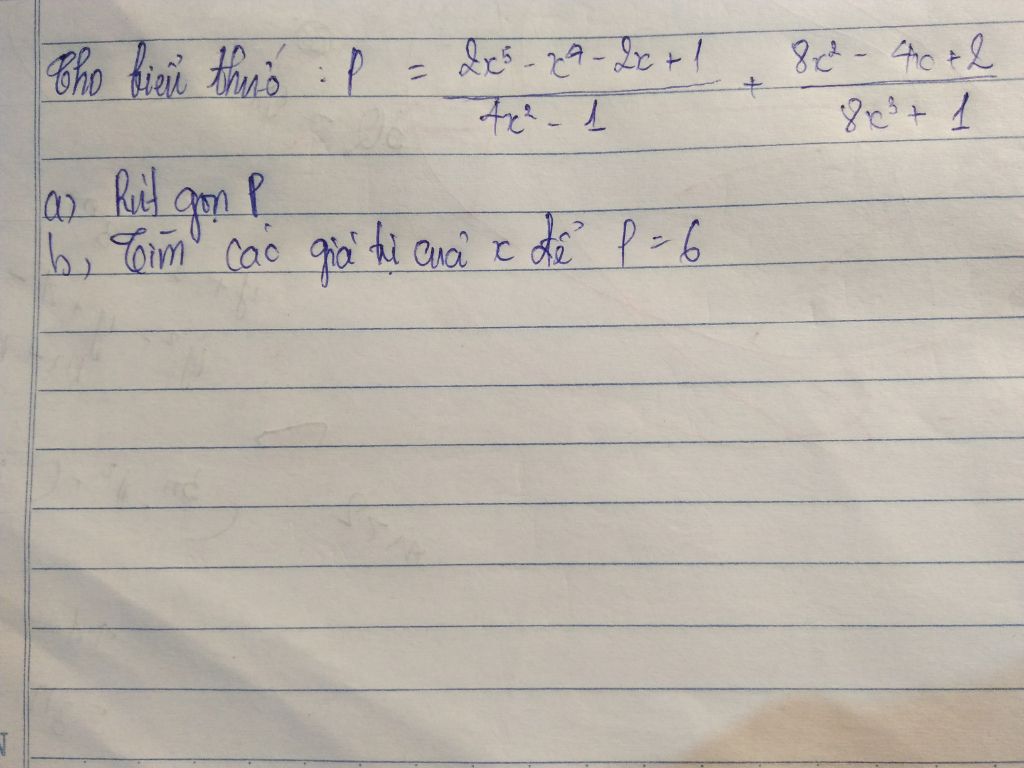 Cho biểu thức : P = \frac{2x^5 - x^4 - 2x + 1}{4x^2 - 1} + \frac{8x^2 - 4x + 2}{8x^3 + 1}
a) Rút gọn P
b, Tìm các giá trị của x để P = 6